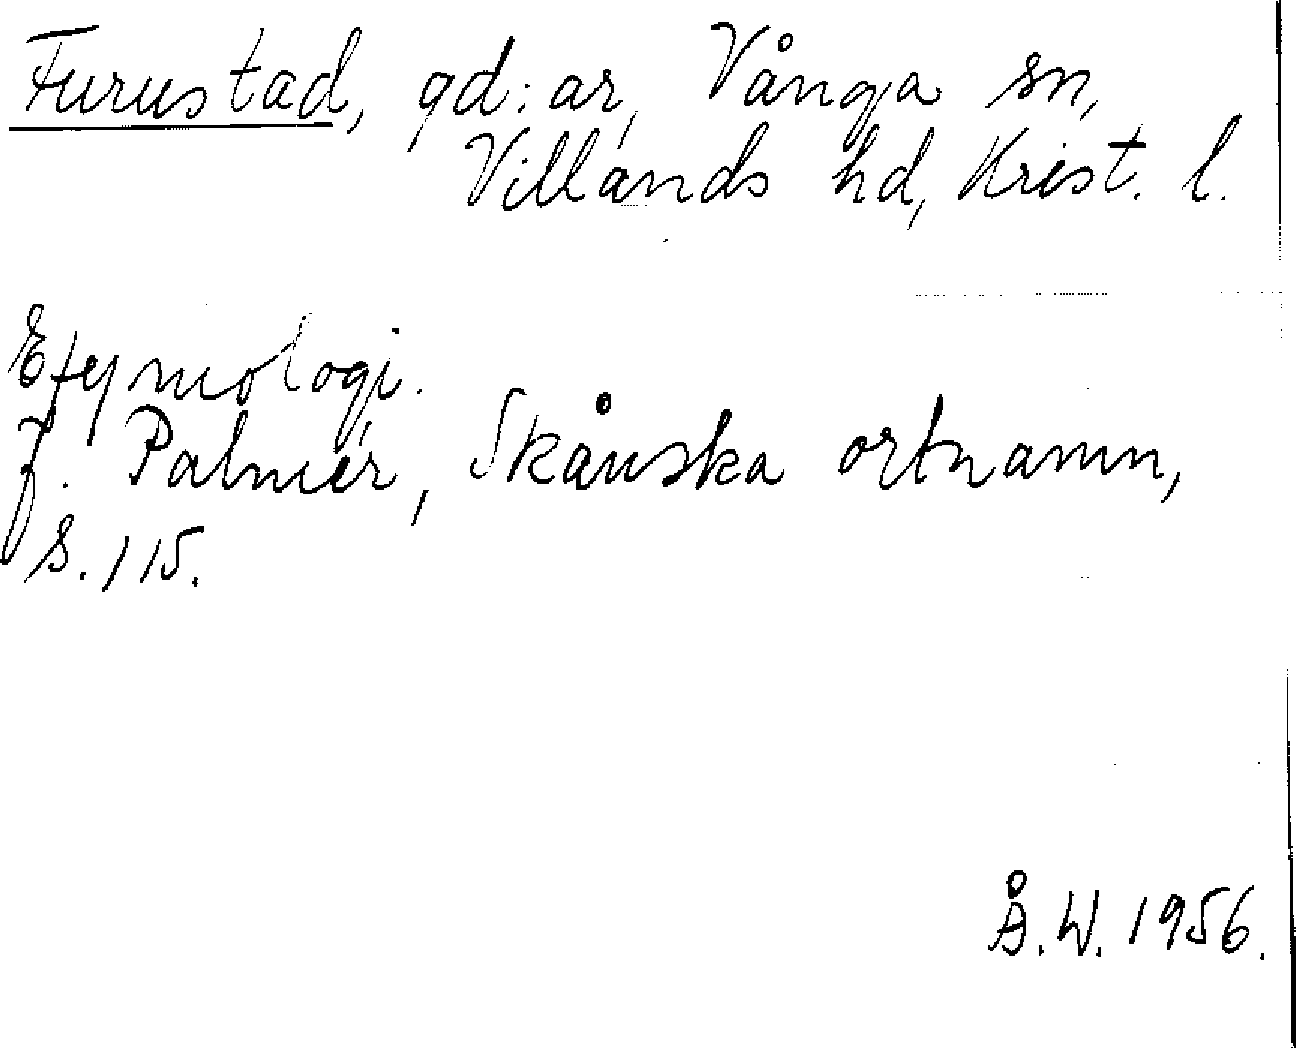 Furustad, gd:ar, Vånga sn,
Villands hd, Krist. l.
Etymologi.
J. Palmér, Skånska ortnamn,
s. 115.
Å.W. 1956.